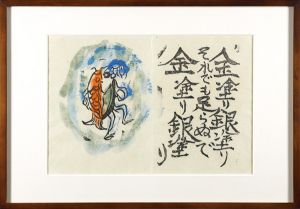 金塗り銀塗り
それでも足らぬで
金塗り銀塗
り